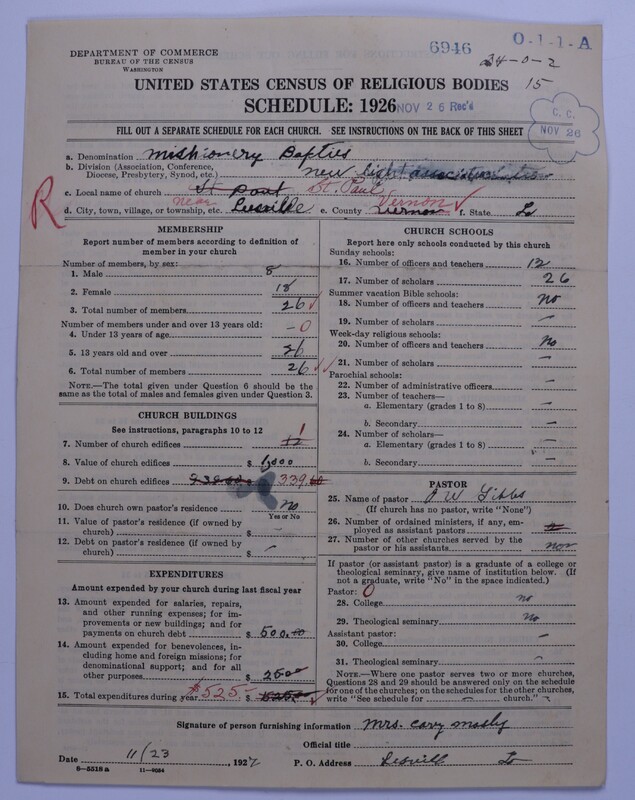 6946
O-1-1-A
34-0-2
15
DEPARTMENT OF COMMERCE
BUREAU OF THE CENSUS
WASHINGTON
UNITED STATES CENSUS OF RELIGIOUS BODIES
SCHEDULE: 1926
NOV 26 Rec'd
C. C.
NOV 26
FILL OUT A SEPARATE SCHEDULE FOR EACH CHURCH. SEE INSTRUCTIONS ON THE BACK OF THIS SHEET
a. Denomination Missionery Bapties
b. Division (Association, Conference, Diocese, Presbytery, Synod, etc.) new light association
c. Local name of church St Paul St. Paul
R
d. City, town, village, or township, etc. near Leesville e. County Vernon Vernon f. State La
MEMBERSHIP
Report number of members according to definition of member in your church
Number of members, by sex:
1. Male 8
2. Female 18
3. Total number of members 26
Number of members under and over 13 years old:
4. Under 13 years of age -0
5. 13 years old and over 26
6. Total number of members 26
NOTE.—The total given under Question 6 should be the same as the total of males and females given under Question 3.
CHURCH BUILDINGS
See instructions, paragraphs 10 to 12
7. Number of church edifices 1
8. Value of church edifices $ 1,000
9. Debt on church edifices 339
10. Does church own pastor's residence no
Yes or No
11. Value of pastor's residence (if owned by church) $
12. Debt on pastor's residence (if owned by church) $ —
EXPENDITURES
Amount expended by your church during last fiscal year
13. Amount expended for salaries, repairs, and other running expenses; for improvements or new buildings; and for payments on church debt $ 500.00
14. Amount expended for benevolences, including home and foreign missions; for denominational support; and for all other purposes $ 2500
15. Total expenditures during year $525- $ 525.00
CHURCH SCHOOLS
Report here only schools conducted by this church
Sunday schools:
16. Number of officers and teachers 12
17. Number of scholars 26
Summer vacation Bible schools:
18. Number of officers and teachers no
19. Number of scholars —
Week-day religious schools:
20. Number of officers and teachers no
21. Number of scholars —
Parochial schools:
22. Number of administrative officers —
23. Number of teachers—
a. Elementary (grades 1 to 8) —
b. Secondary —
24. Number of scholars—
a. Elementary (grades 1 to 8) —
b. Secondary —
PASTOR
25. Name of pastor J W Gibbs
(If church has no pastor, write "None")
26. Number of ordained ministers, if any, employed as assistant pastors
27. Number of other churches served by the pastor or his assistants non
If pastor (or assistant pastor) is a graduate of a college or theological seminary, give name of institution below. (If not a graduate, write "No" in the space indicated.)
Pastor: 0
28. College no
29. Theological seminary No
Assistant pastor:
30. College —
31. Theological seminary —
NOTE.—Where one pastor serves two or more churches, Questions 28 and 29 should be answered only on the schedule for one of the churches; on the schedules for the other churches, write "See schedule for — church."
Signature of person furnishing information Mrs. Cary Mosly
Official title
Date 11/23, 1927 P. O. Address Lesvill La
8—5518 a 11—9054